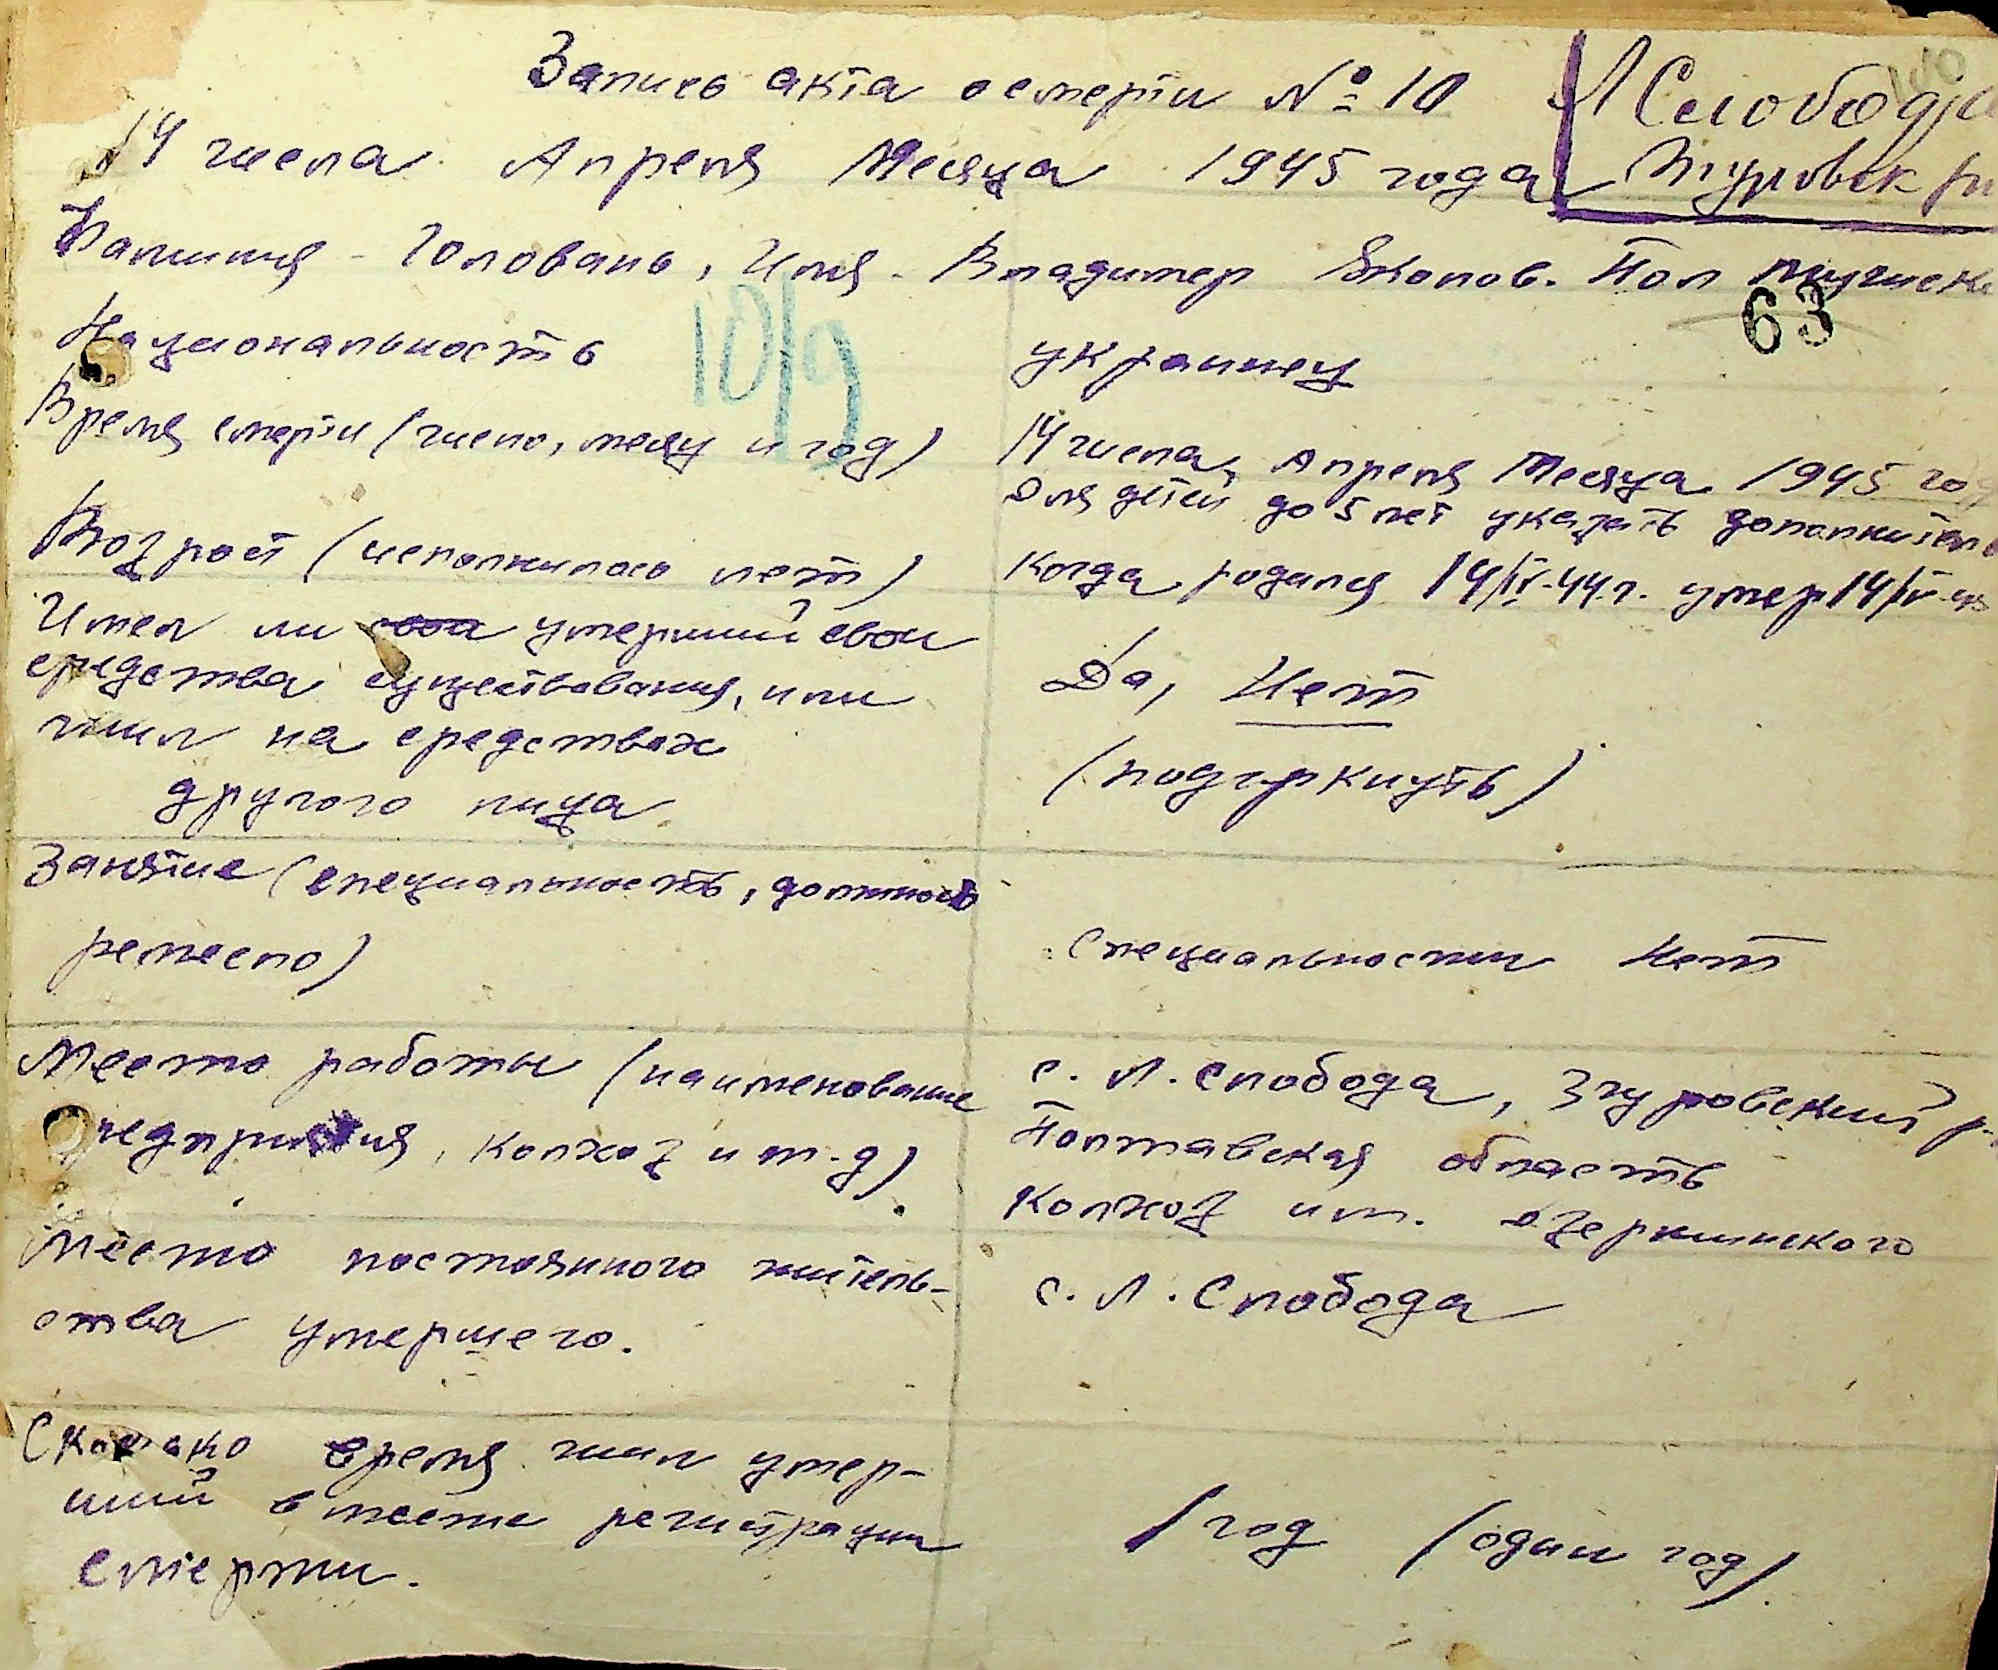 Запись акта о смерти № 10
Л Слобода
14 числа Апреля Месяца 1945 года
Згуровск
Фамилия - Головань, Имя - Владимер Яковов. Пол мужск
63
10/9
Национальность украинец
Время смерти (число, месяц и год) 14 числа, Апреля Месяца 1945 год
Для детей до 5 лет указать дополнительн
Возрост (исполнилось лет) Когда родился 14/IV-44 г. умер 14/IV-45
Имел ли свои умерший свои
средства существования, или Да, Нет
жил на средствах
другого лица (подчркнуть)
Занятие (специальность, должность
ремесло) Специальности Нет
Место работы (наименование с. Л. Слобода, Згуровский р-
предприятия, колхоз и т.д) Полтавская область
Колхоз им. Дзержинского
Место постоянного житель-
ства умершего. с. Л. Слобода
Сколько время жил умер-
ший в месте регистрации 1 год (один год).
смерти.